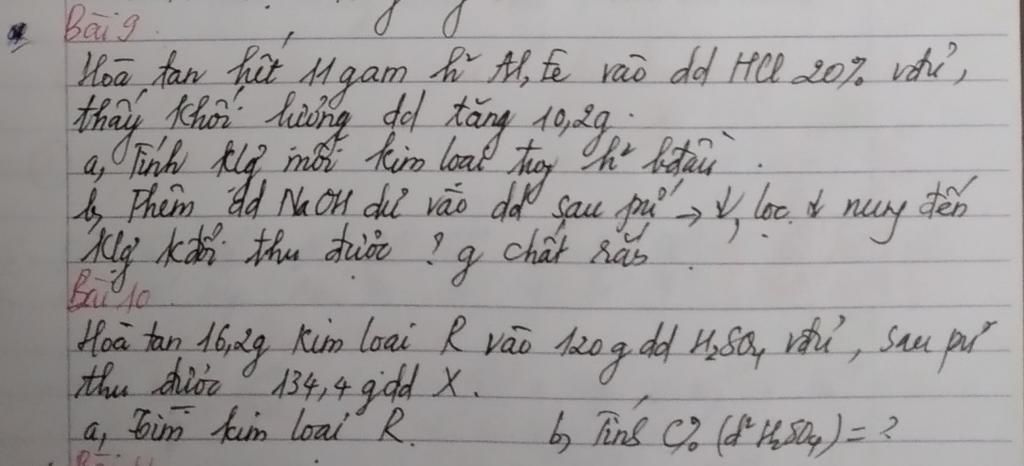 Bài 9.
Hoà tan hết 11 gam h² Al, Fe vào dd HCl 20% vđủ,
thấy khối lượng dd tăng 10,2g.
a, Tính klg mỗi kim loại trog h² bđầu.
b, Thêm dd NaOH dư vào dd sau pứ → ↓, lọc ↓ nung đến
klg kđổi thu được ? g chất rắn.
Bài 10
Hoà tan 16,2g kim loại R vào 120g dd H₂SO₄ vđủ, sau pứ
thu được 134,4g dd X.
a, Tìm kim loại R. b, Tính C% (d² H₂SO₄) = ?